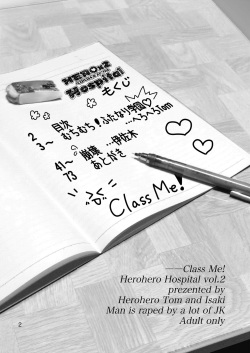 HERO×2
Hospital
もくじ
2 目次
3〜 むちむち!ふたなり学園♡
…へろへろTom
41〜 崩壊 …伊佐木
73 あとがき
Class Me!
——Class Me!
Herohero Hospital vol.2
prezented by
Herohero Tom and Isaki
Man is raped by a lot of JK
Adult only
2